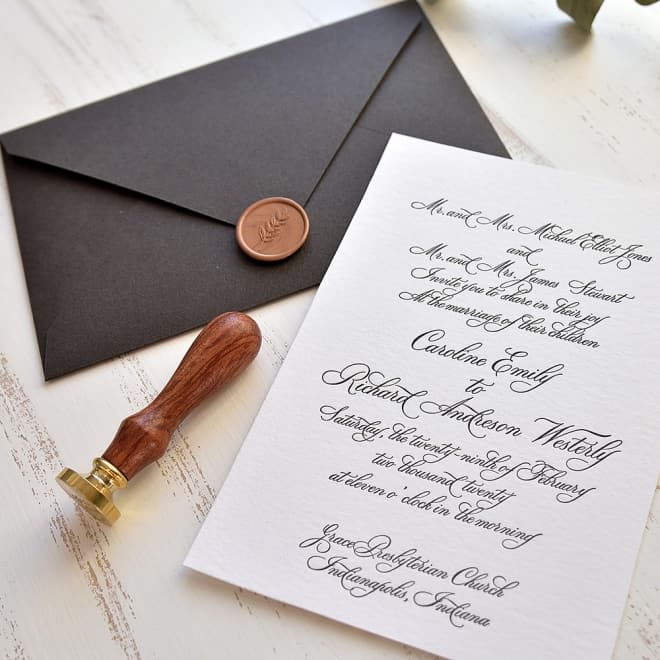 Mr. and Mrs. Michael Elliot Jones
and
Mr. and Mrs. James Stewart
Invite you to share in their joy
At the marriage of their children
Caroline Emily
to
Richard Andreson Westerly
Saturday, the twenty-ninth of February
two thousand twenty
at eleven o 'clock in the morning
Grace Presbyterian Church
Indianapolis, Indiana